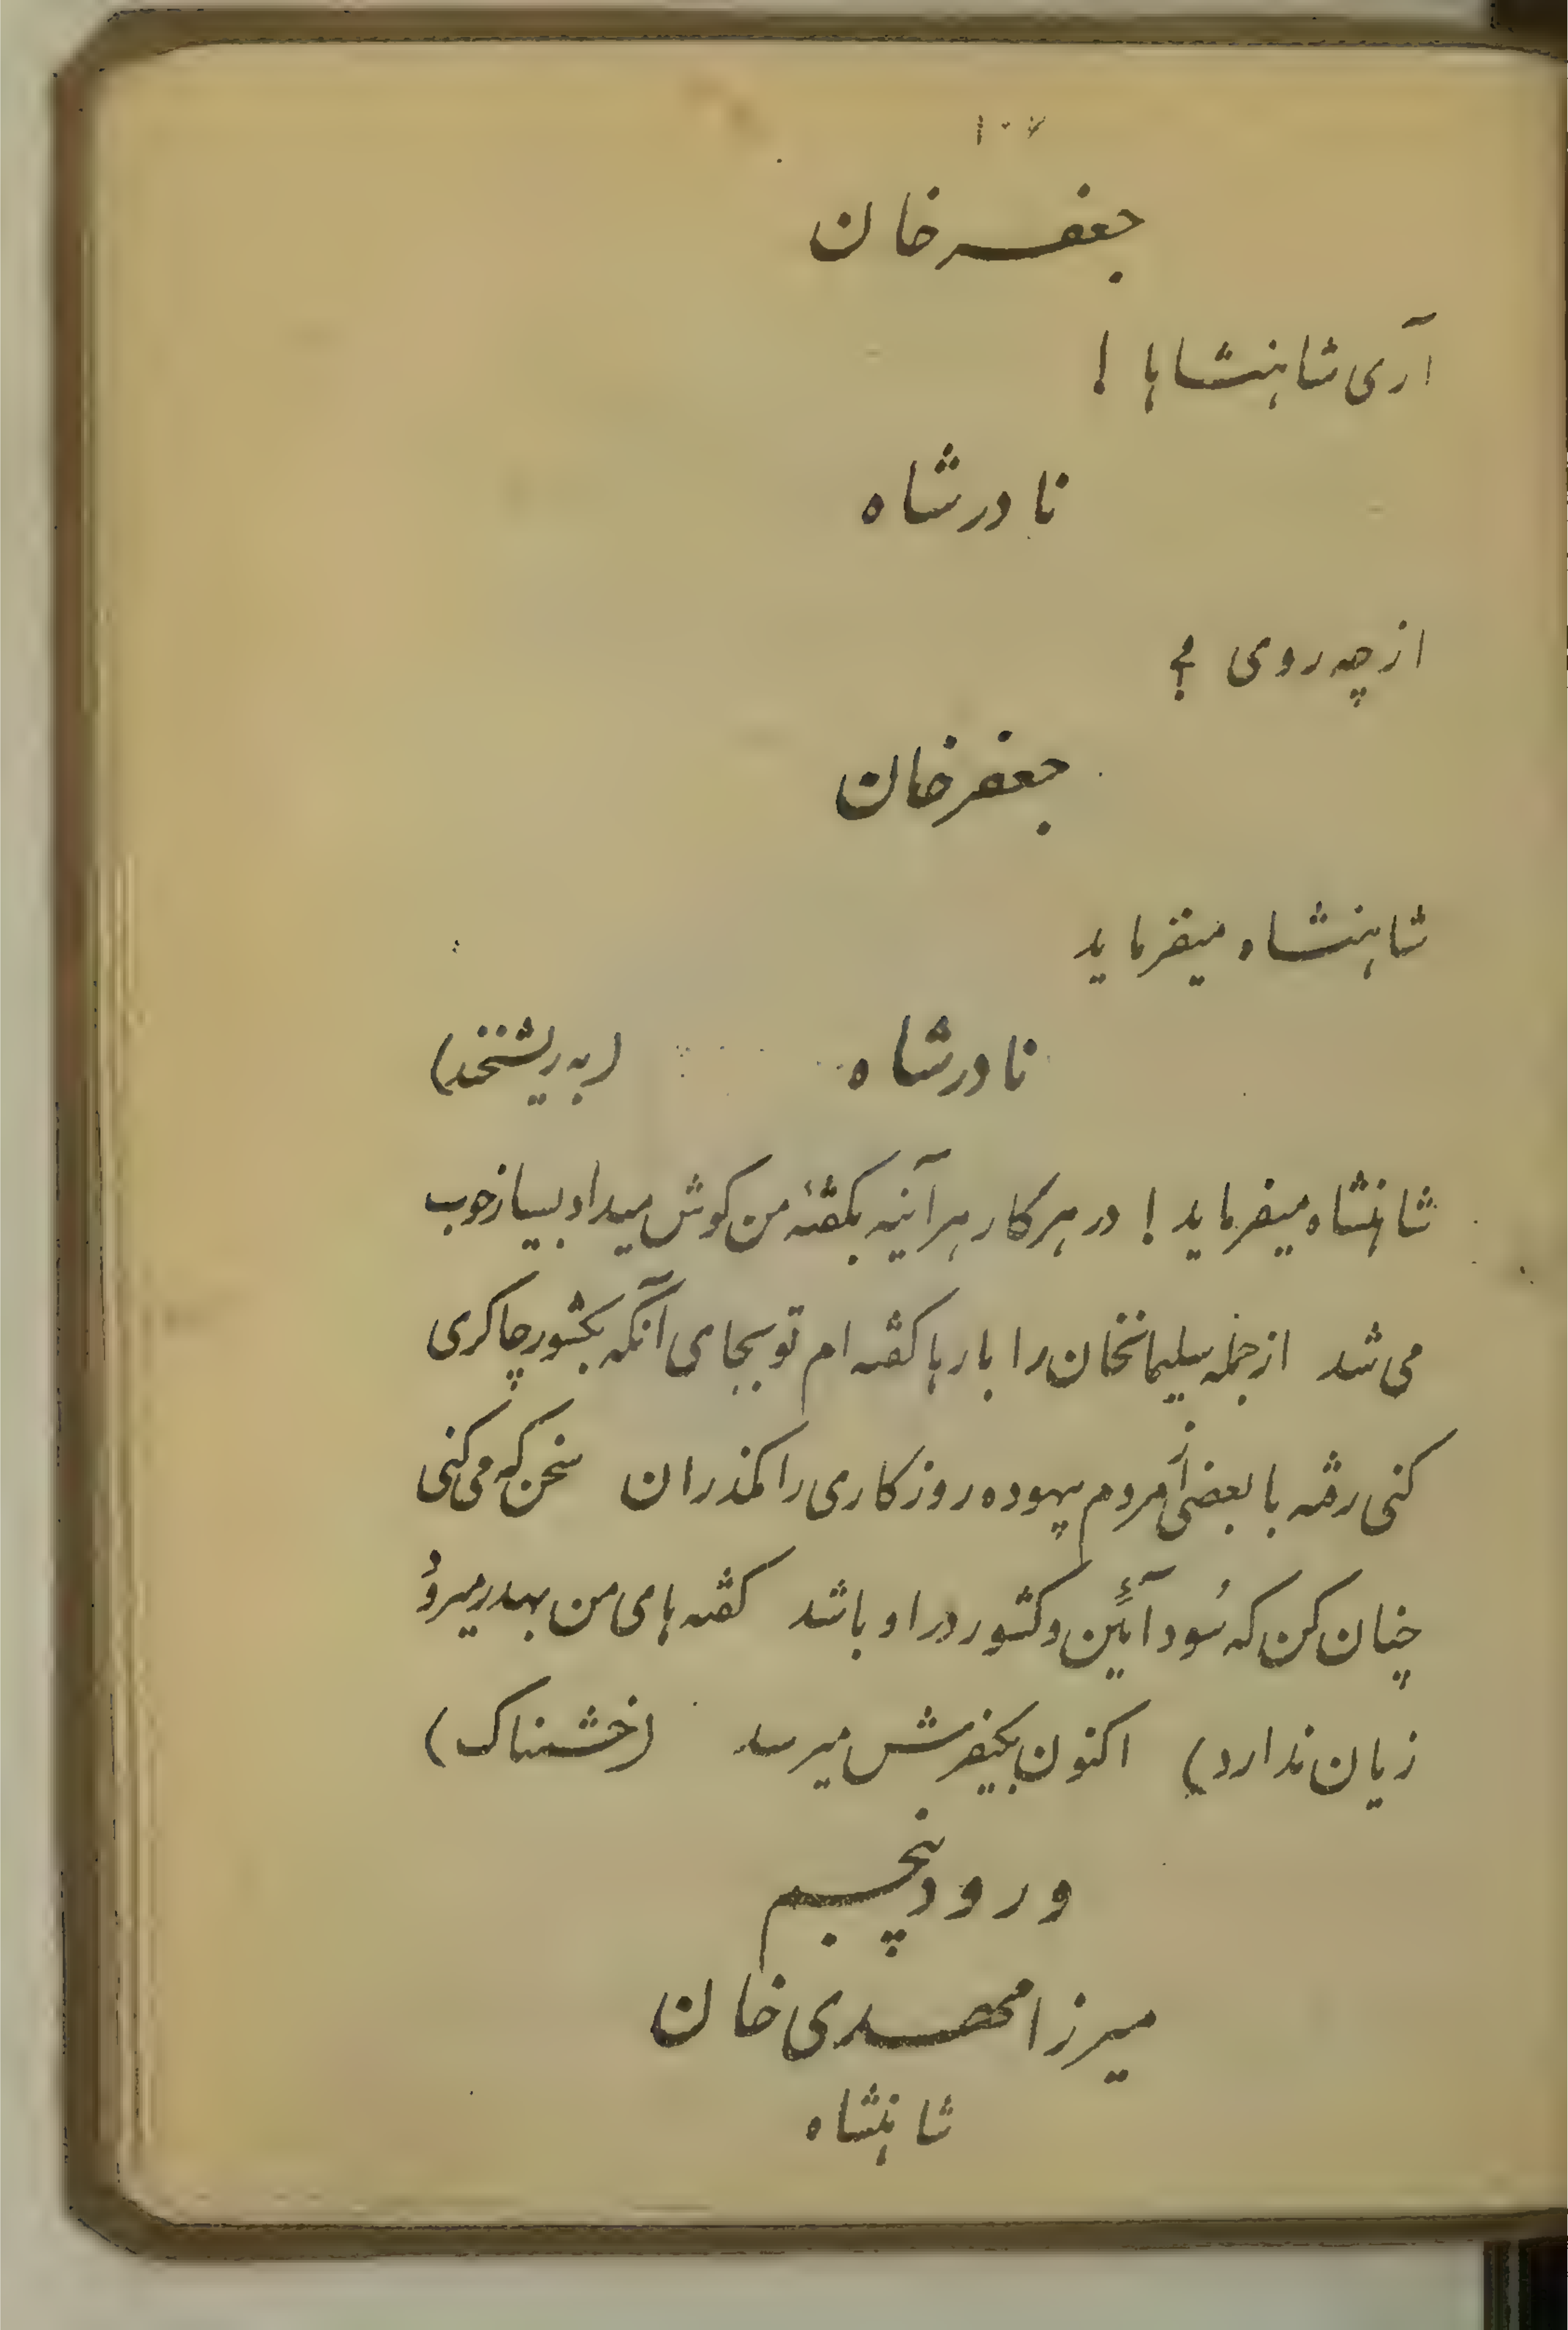 ۱۰۷
جعفرخان
آری شاهنشاها !
نادرشاه
از چه روی ؟
جعفرخان
شاهنشاه میفرماید
نادرشاه (به ریشخند)
شاهنشاه میفرماید ! در هر کار هر آینه بکفتهٔ من کوش میداد بسیار خوب
می شد از جمله سلیمانخان را بارها کفته ام تو بجای آنکه بکشور چاکری
کنی رفته با بعضی از مردم بیهوده روزکاری را مکذران سخن که می کنی
چنان کن که سُود آئین و کشور در او باشد کفته های من بهدر میروُ
زیان ندارد) اکنون بکیفرش میرسد (خشمناک)
ورود پنجم
میرزا مهدی خان
شاهنشاه